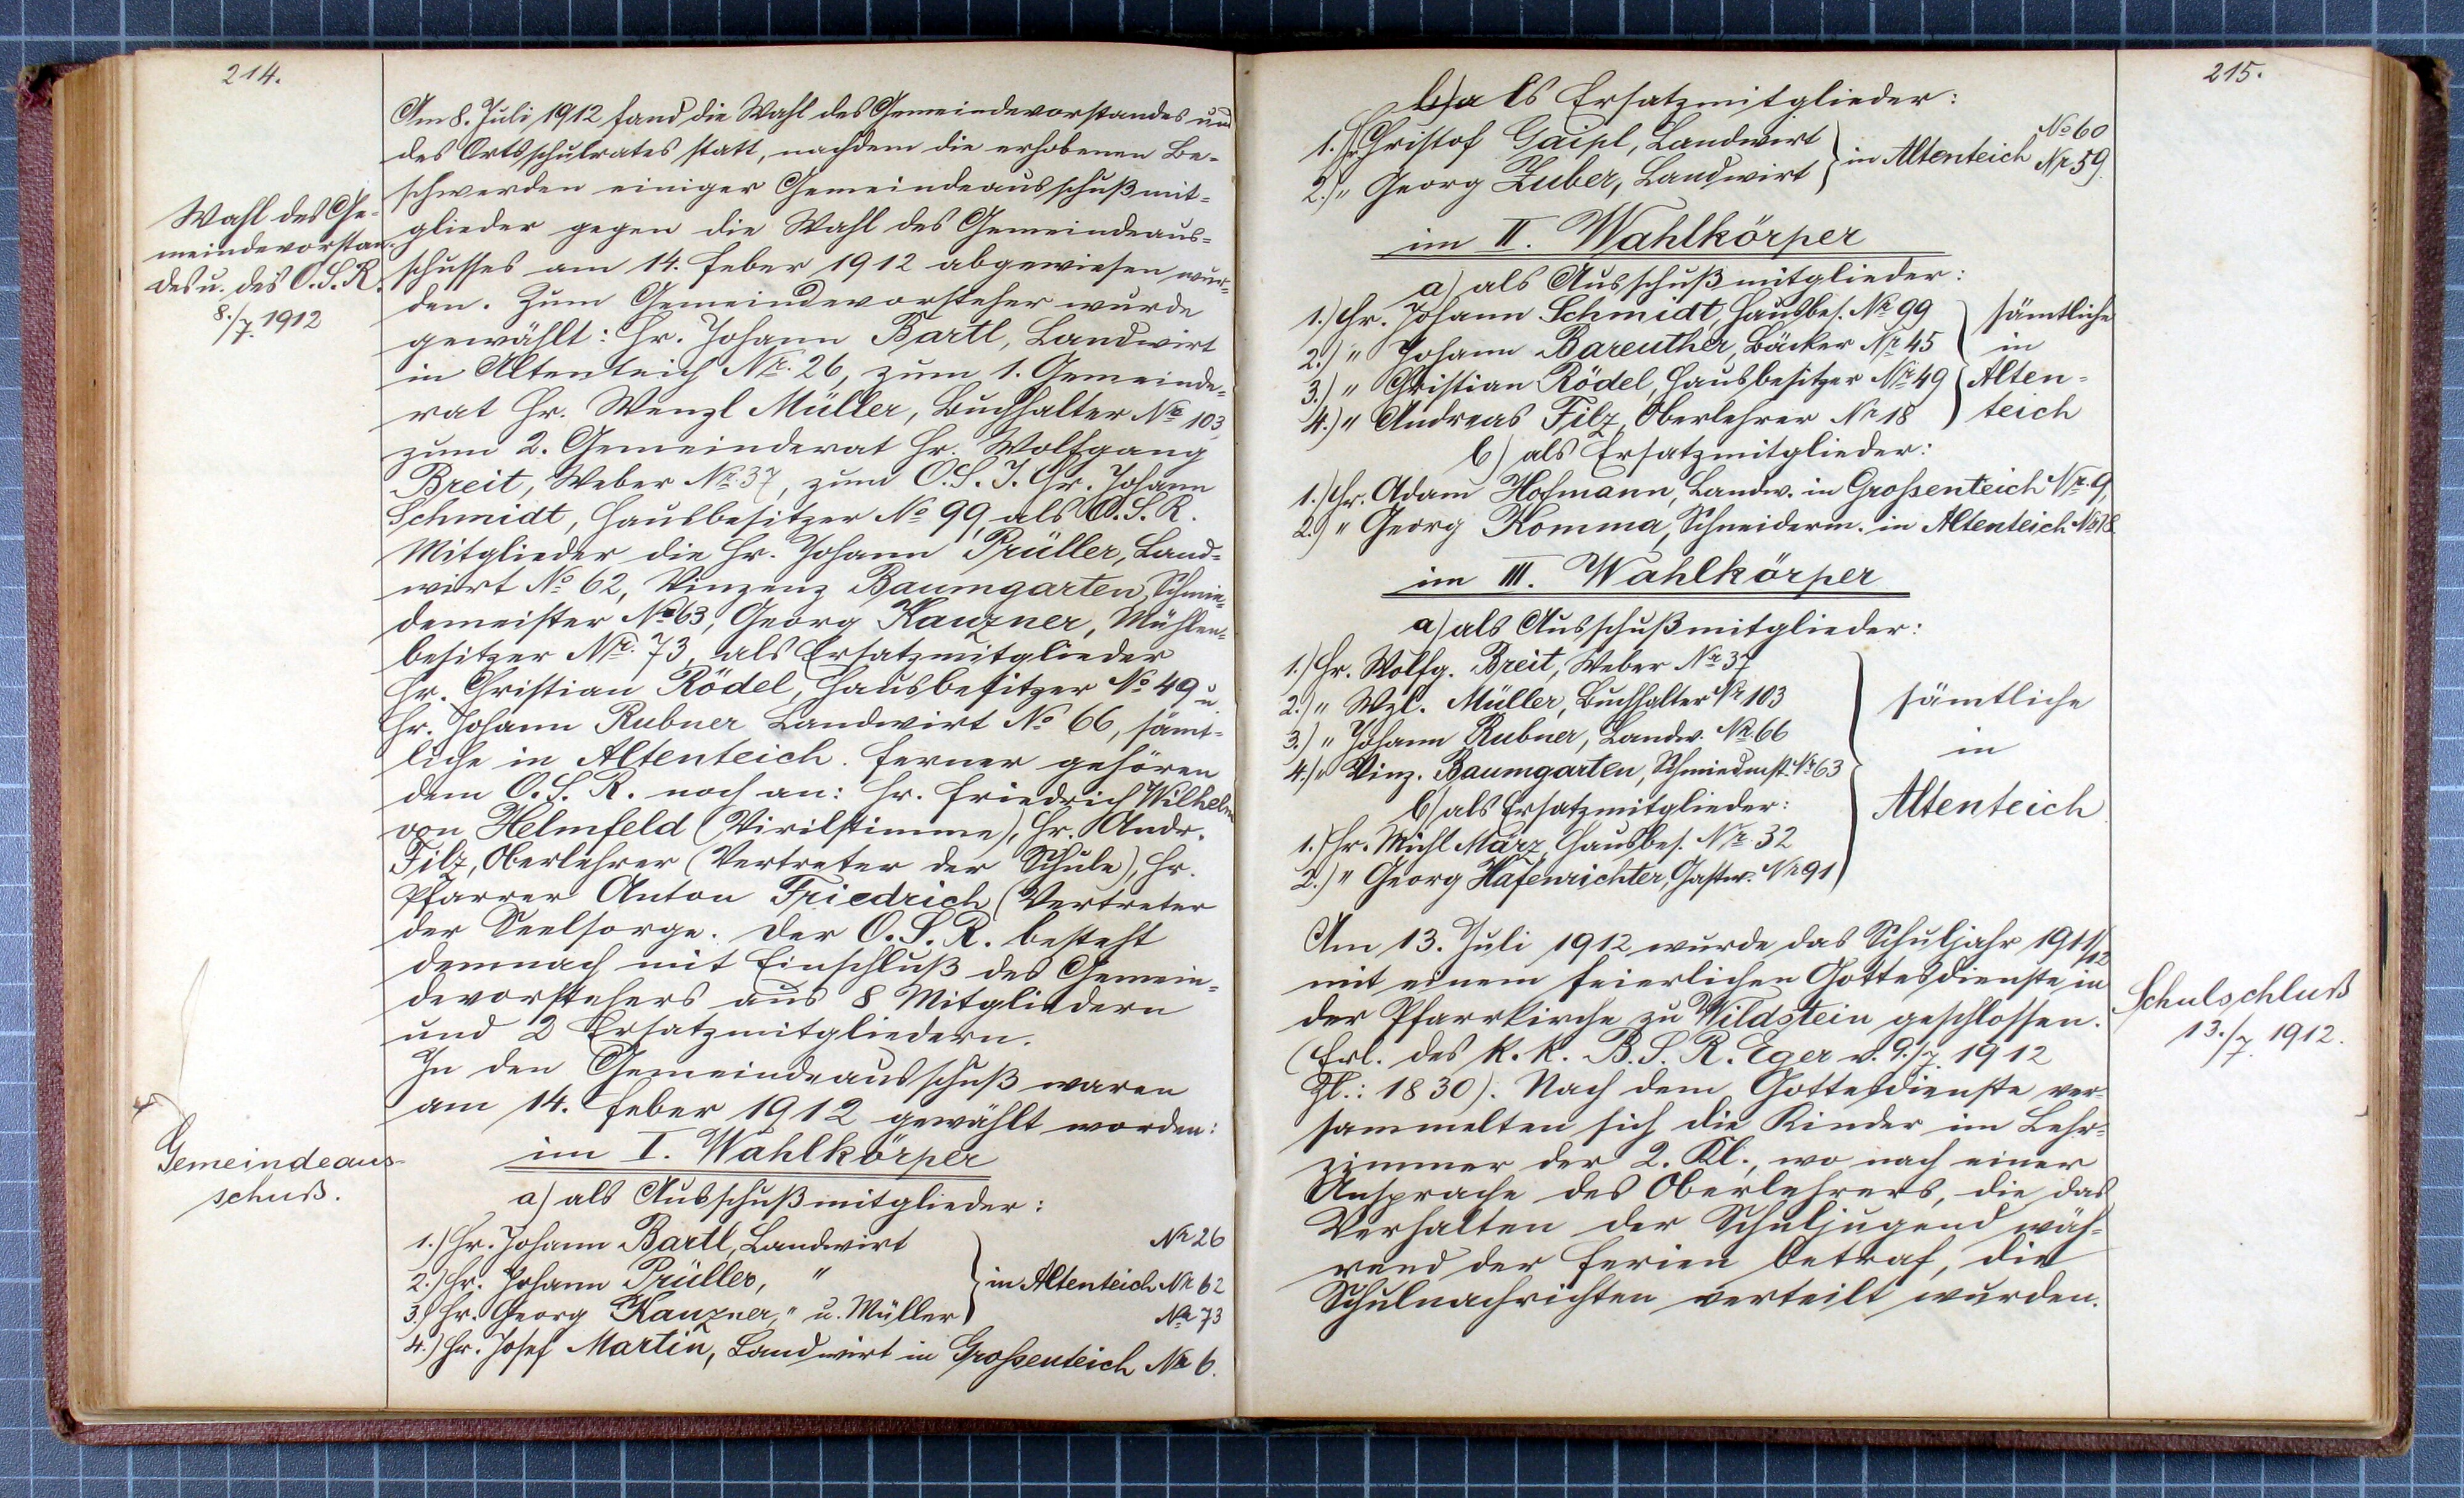 214.
Wahl des Ge-
meindevorstan-
des u. des O.S.R.
8./7. 1912
Am 8. Juli 1912 fand die Wahl des Gemeindevorstandes und
des Ortsschulrates statt, nachdem die erhobenen Be-
schwerden einiger Gemeindeausschußmit-
glieder gegen die Wahl des Gemeindeaus-
schusses am 14. Feber 1912 abgewiesen wur-
den. Zum Gemeindevorsteher wurde
gewählt: Hr. Johann Bartl, Landwirt
in Altenteich Nr. 26, zum 1. Gemeinde-
rat Hr. Wenzl Müller, Buchhalter Nr 103,
zum 2. Gemeinderat Hr. Wolfgang
Breit, Weber Nr. 37, zum O.S.I. Hr. Johann
Schmidt, Hausbesitzer No 99, als O.S.R.
Mitglieder die Hr. Johann Prüller, Land-
wirt No 62, Vinzenz Baumgarten, Schmie-
demeister No 63, Georg Kauzner, Mühlen-
besitzer Nr. 73, als Ersatzmitglieder
Hr. Christian Rödel, Hausbesitzer No 49 u.
Hr. Johann Rubner Landwirt No 66, sämt-
liche in Altenteich. Ferner gehören
dem O.S.R. noch an: Hr. Friedrich Wilhelm
von Helmfeld (Virilstimme), Hr. Andr.
Filz, Oberlehrer (Vertreter der Schule), Hr.
Pfarrer Anton Friedrich (Vertreter
der Seelsorge. Der O.S.R. besteht
demnach mit Einschluß des Gemein-
devorstehers aus 8 Mitgliedern
und 2 Ersatzmitgliedern.
In den Gemeindeausschuß waren
am 14. Feber 1912 gewählt worden:
Gemeindeaus-
schuß.
im I. Wahlkörper
a) als Ausschußmitglieder:
1.) Hr. Johann Bartl, Landwirt Nr 26
2.) Hr. Johann Prüller, " in Altenteich Nr 62
3.) Hr. Georg Kauzner, " u. Müller Nr 73
4.) Hr. Josef Martin, Landwirt in Großenteich Nr 6.
215.
b) als Ersatzmitglieder:
1.) Hr. Christof Gaipl, Landwirt No 60
2.) " Georg Zuber, Landwirt in Altenteich Nr. 59.
im II. Wahlkörper
a) als Ausschußmitglieder:
1.) Hr. Johann Schmidt, Hausbes. Nr 99 sämtliche
2.) " Johann Bareuther, Bäcker Nr 45 in
3.) " Christian Rödel, Hausbesitzer Nr 49 Alten-
4.) " Andreas Filz, Oberlehrer Nr 18 teich
b) als Ersatzmitglieder:
1.) Hr. Adam Hofmann, Landw. in Großenteich Nr. 9,
2.) " Georg Komma, Schneiderm. in Altenteich Nr 78.
im III. Wahlkörper
a) als Ausschußmitglieder:
1.) Hr. Wolfg. Breit, Weber Nr 37
2.) " Wzl. Müller, Buchhalter Nr 103 sämtliche
3.) " Johann Rubner, Landw. Nr. 66 in
4.) " Vinz. Baumgarten, Schmiedmst. Nr 63
b) als Ersatzmitglieder: Altenteich
1.) Hr. Michl März, Hausbes. Nr 32
2.) " Georg Hafenrichter, Gastw. Nr 91
Am 13. Juli 1912 wurde das Schuljahr 1911/12
mit einem feierlichen Gottesdienste in
der Pfarrkirche zu Wildstein geschlossen.
(Erl. des k.k. B.S.R. Eger v. 9./7. 1912
Zl.: 1830). Nach dem Gottesdienste ver-
sammelten sich die Kinder im Lehr-
zimmer der 2. Kl., wo nach einer
Ansprache des Oberlehrers, die das
Verhalten der Schuljugend wäh-
rend der Ferien betraf, die
Schulnachrichten verteilt wurden.
Schulschluß
13./7. 1912.